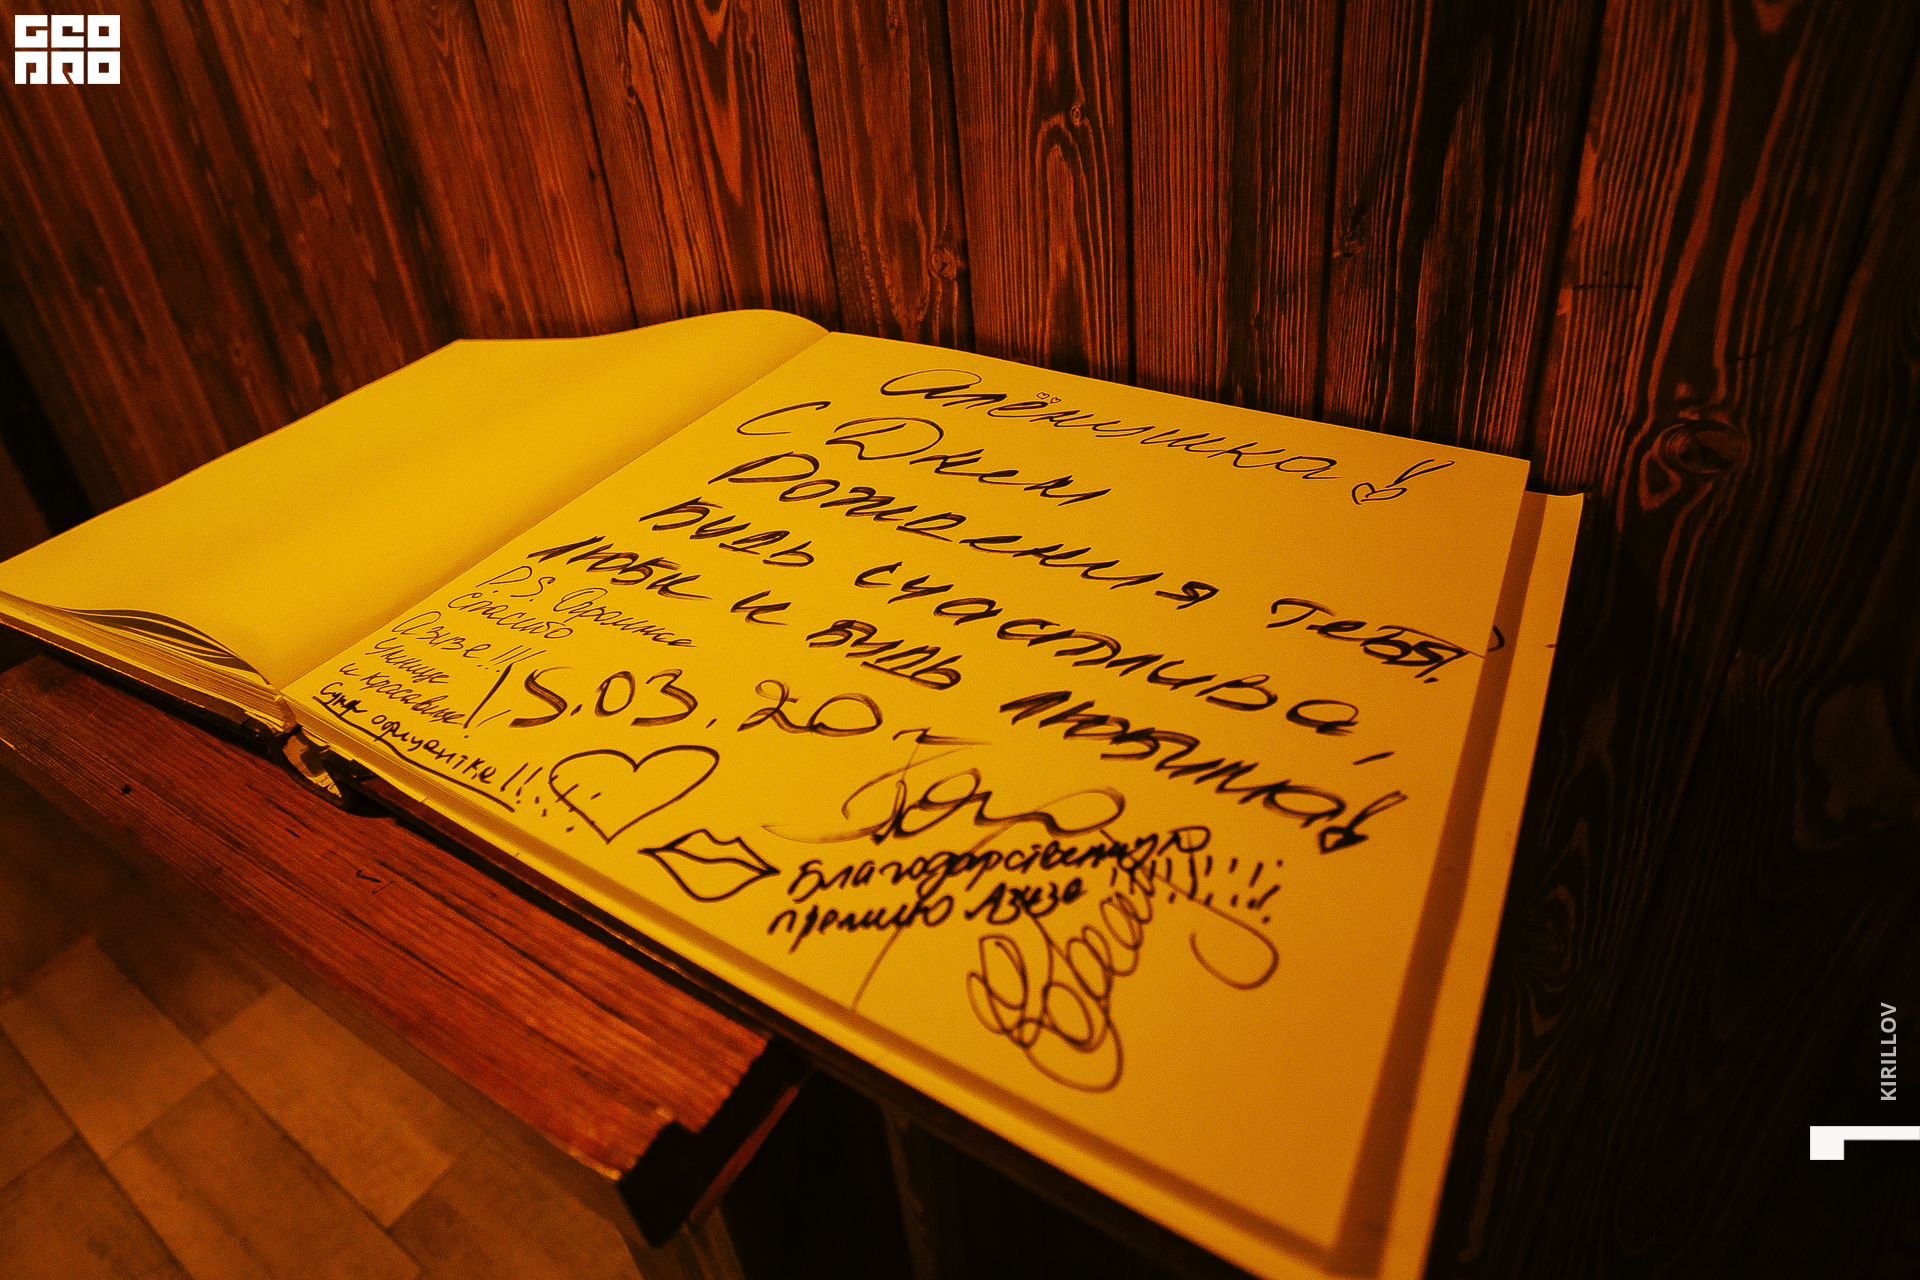 GEO
PRO
Алёнушка!
С Днем
Рождения тебя!
Будь счастлива,
люби и будь любима!
P.S. Огромное
спасибо
Азизе!!!
Умнице
и красавице!
супер официантке!!!
15.03.20
Благодарственную
премию Азизе!!!!!!
KIRILLOV
1